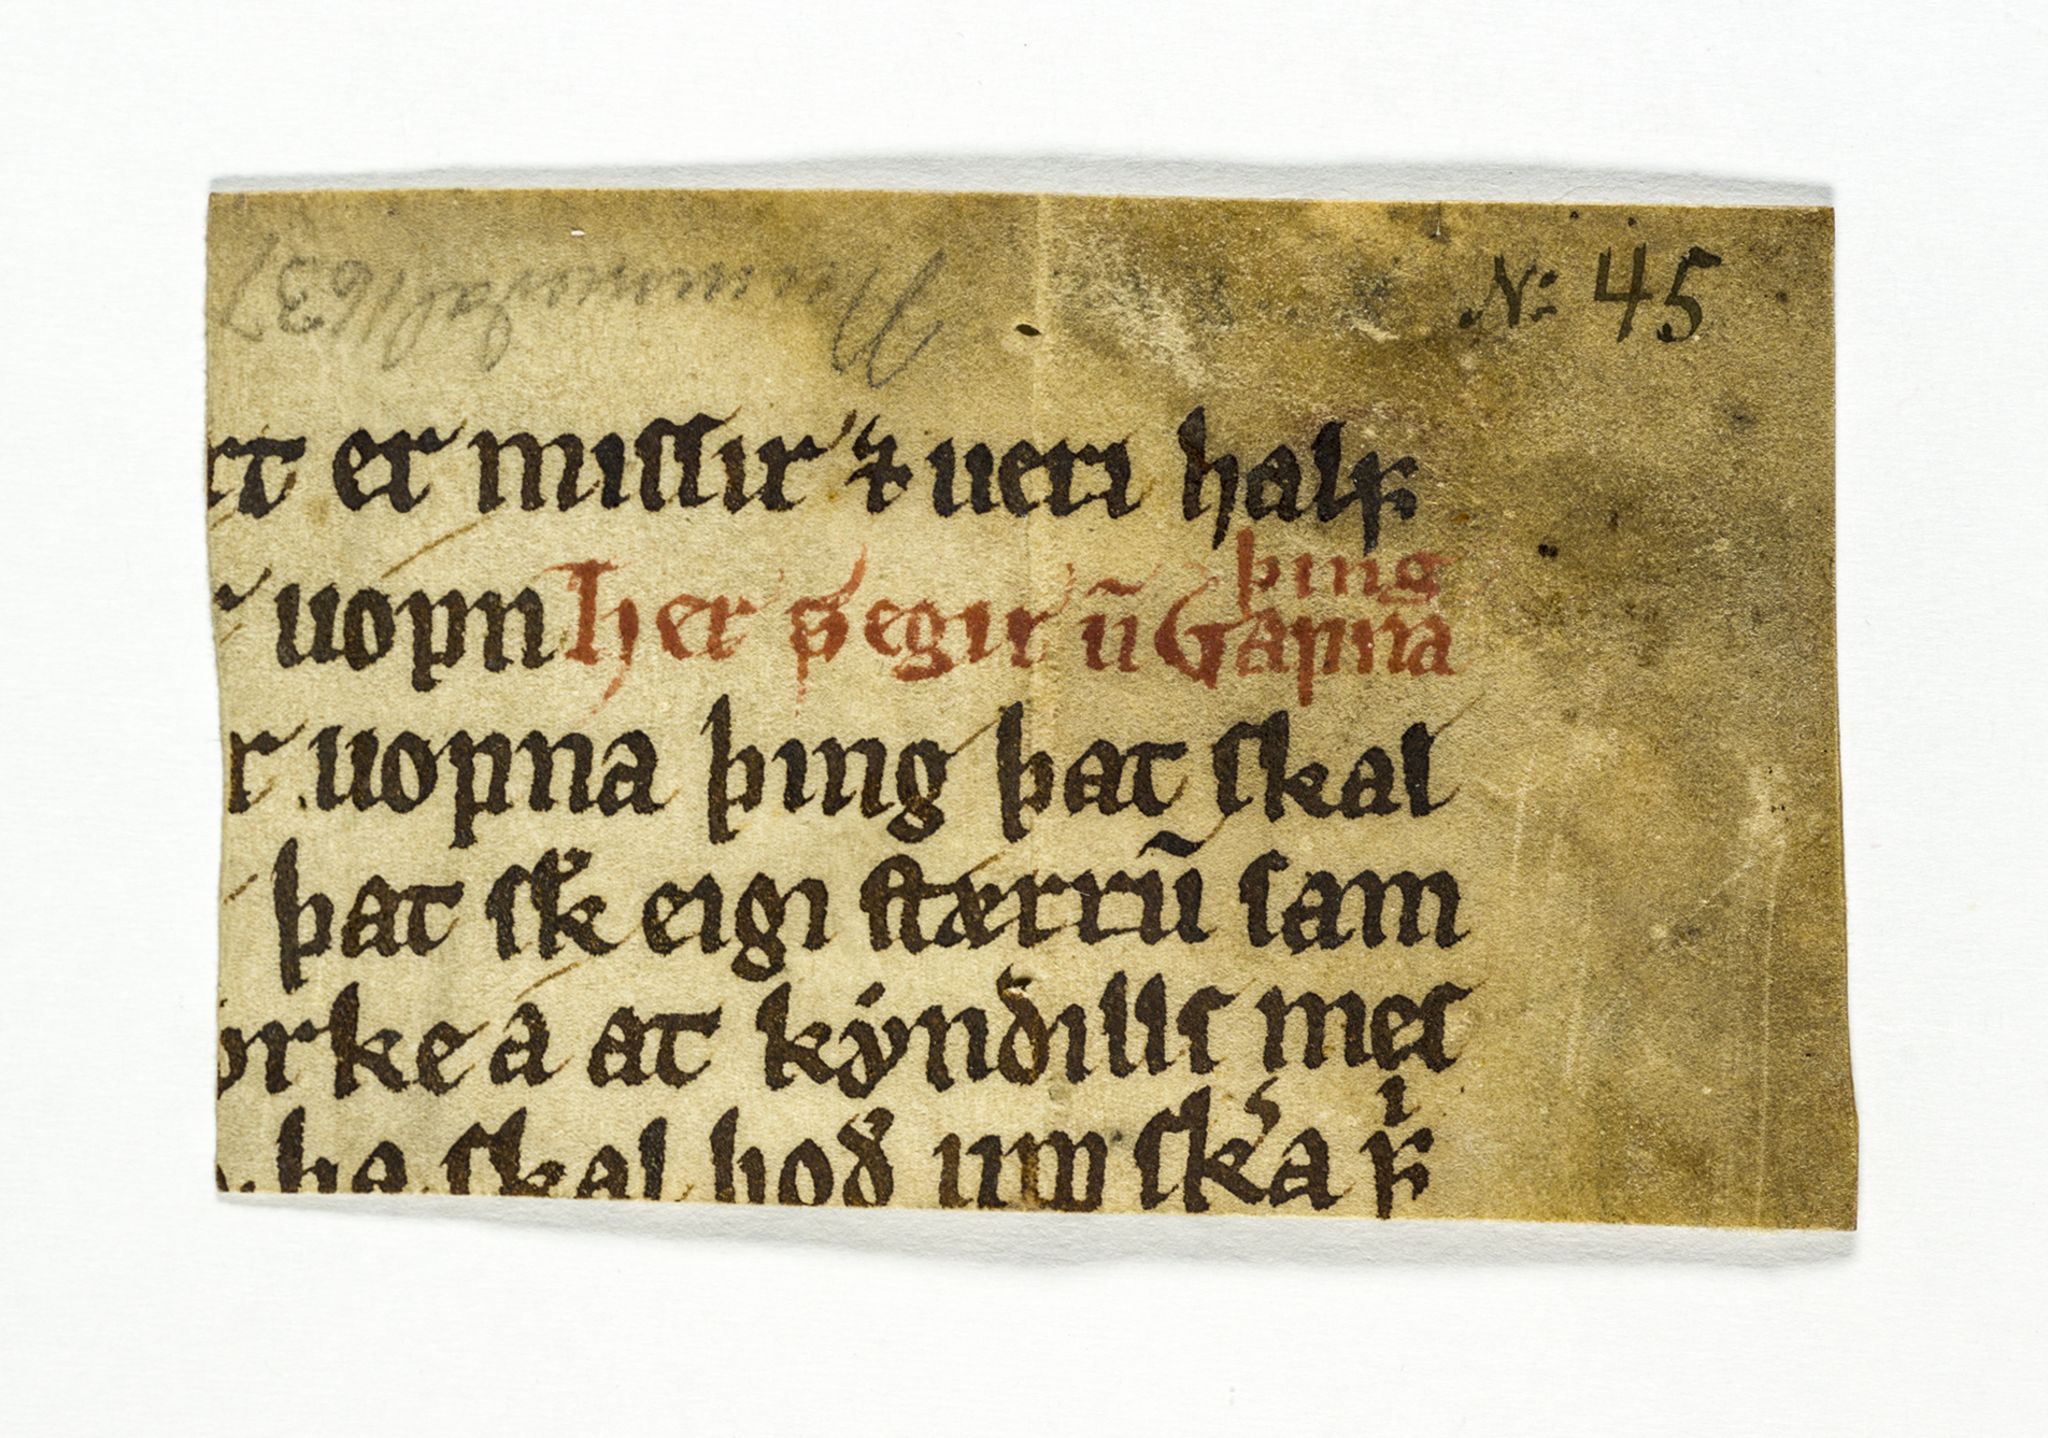 Nummedal 1637
No: 45
rt er miſſir ⁊ ueri halꝼ
uopn her ſegir ū ꝩapna
þing
r uopna þing þat ſkal
þat ſk̄ eigi ſtærrū ſam
orke a at kẏnꝺillſ meſ
ha ſkal boð upp ſkꝛa